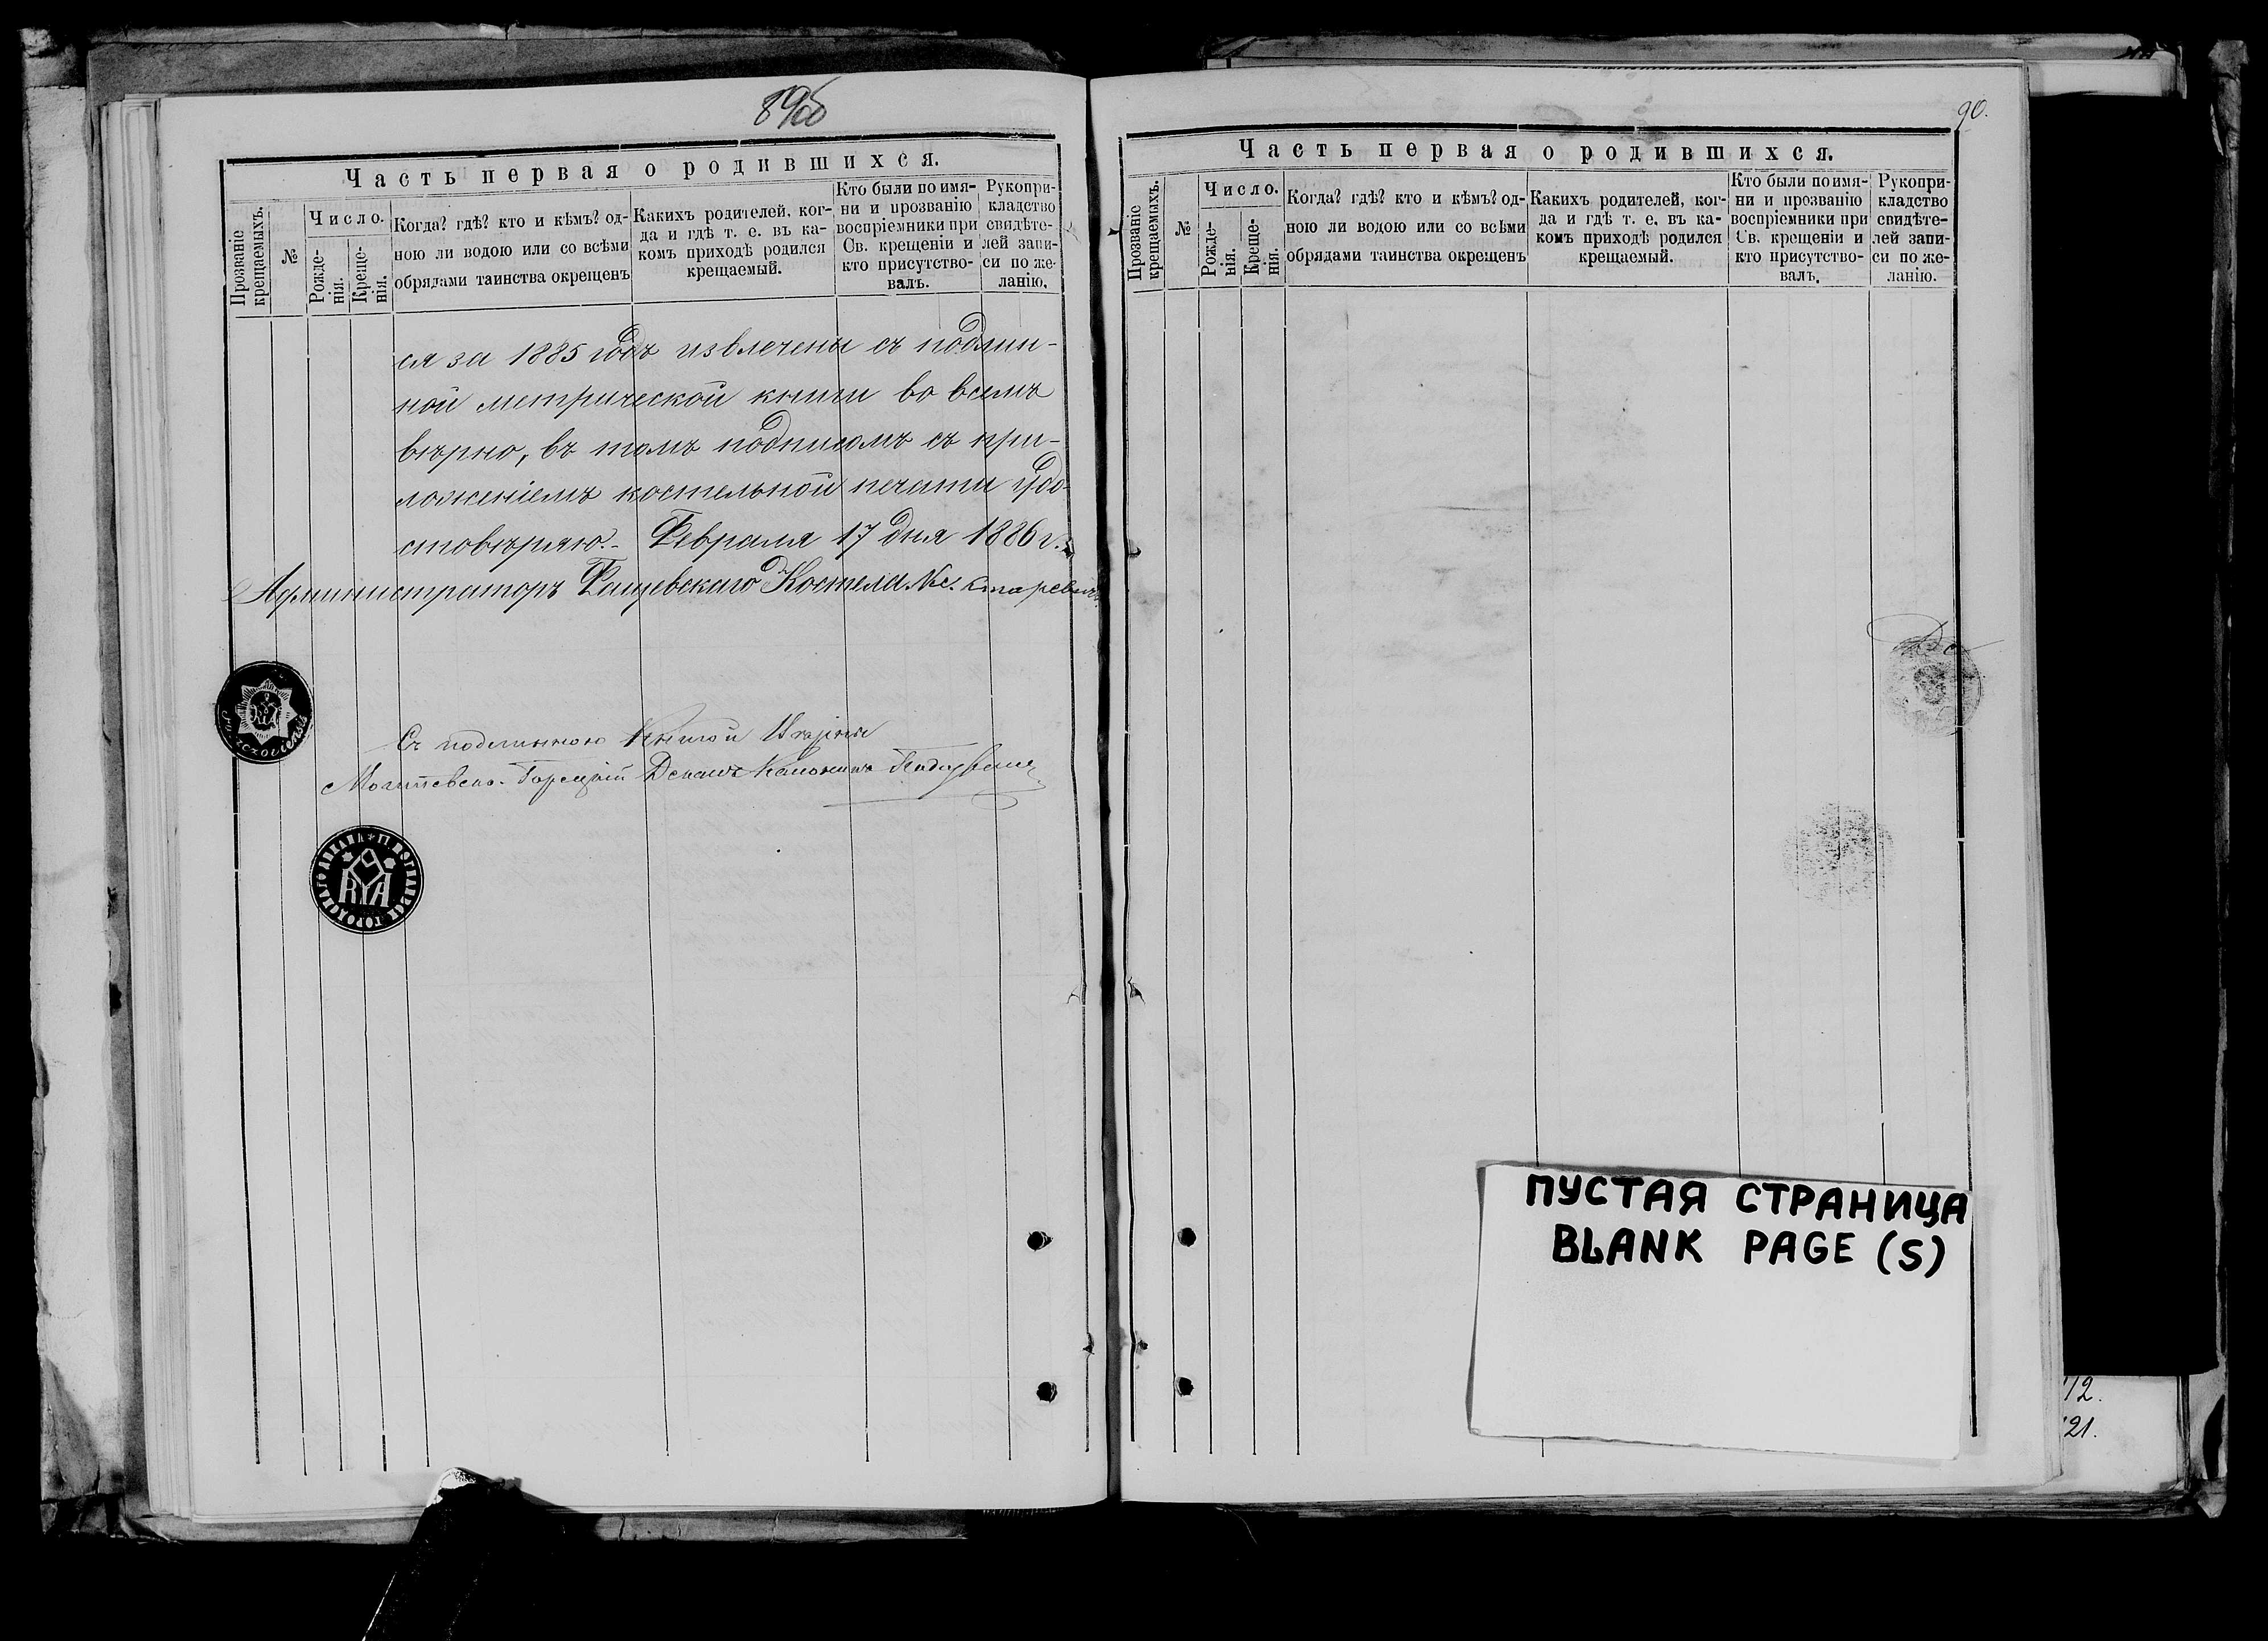 89об
Часть первая о родившихся.
Прозваніе крещаемыхъ.
№
Число.
Рожде-
нія.
Креще-
нія.
Когда? гдѣ? кто и кѣмъ? од-
ною ли водою или со всѣми
обрядами таинства окрещенъ
Какихъ родителей, ког-
да и гдѣ т. е. въ ка-
комъ приходѣ родился
крещаемый.
Кто были по имя-
ни и прозванію
воспріемники при
Св. крещеніи и
кто присутство-
валъ.
Рукопри-
кладство
свидѣте-
лей запи-
си по же-
ланію.
ся за 1885 годъ извлечены съ подлин-
ной метрической книги во всемъ
вѣрно, въ томъ подписомъ съ при-
ложеніемъ костельной печати удо-
стовѣряю.- Февраля 17 дня 1886 г.
Администраторъ Фащевскаго Костела
Съ подлинною Книгой
Могилевско-Горецкій Деканъ Каноникъ
90.
Часть первая о родившихся.
Прозваніе
крещаемыхъ.
№
Число.
Рожде-
нія.
Креще-
нія.
Когда? гдѣ? кто и кѣмъ? од-
ною ли водою или со всѣми
обрядами таинства окрещенъ
Какихъ родителей, ког-
да и гдѣ т. е. въ ка-
комъ приходѣ родился
крещаемый.
Кто были по имя-
ни и прозванію
воспріемники при
Св. крещеніи и
кто присутство-
валъ.
Рукопри-
кладство
свидѣте-
лей запи-
си по же-
ланію.
ПУСТАЯ СТРАНИЦА
BLANK PAGE (S)
112.
121.